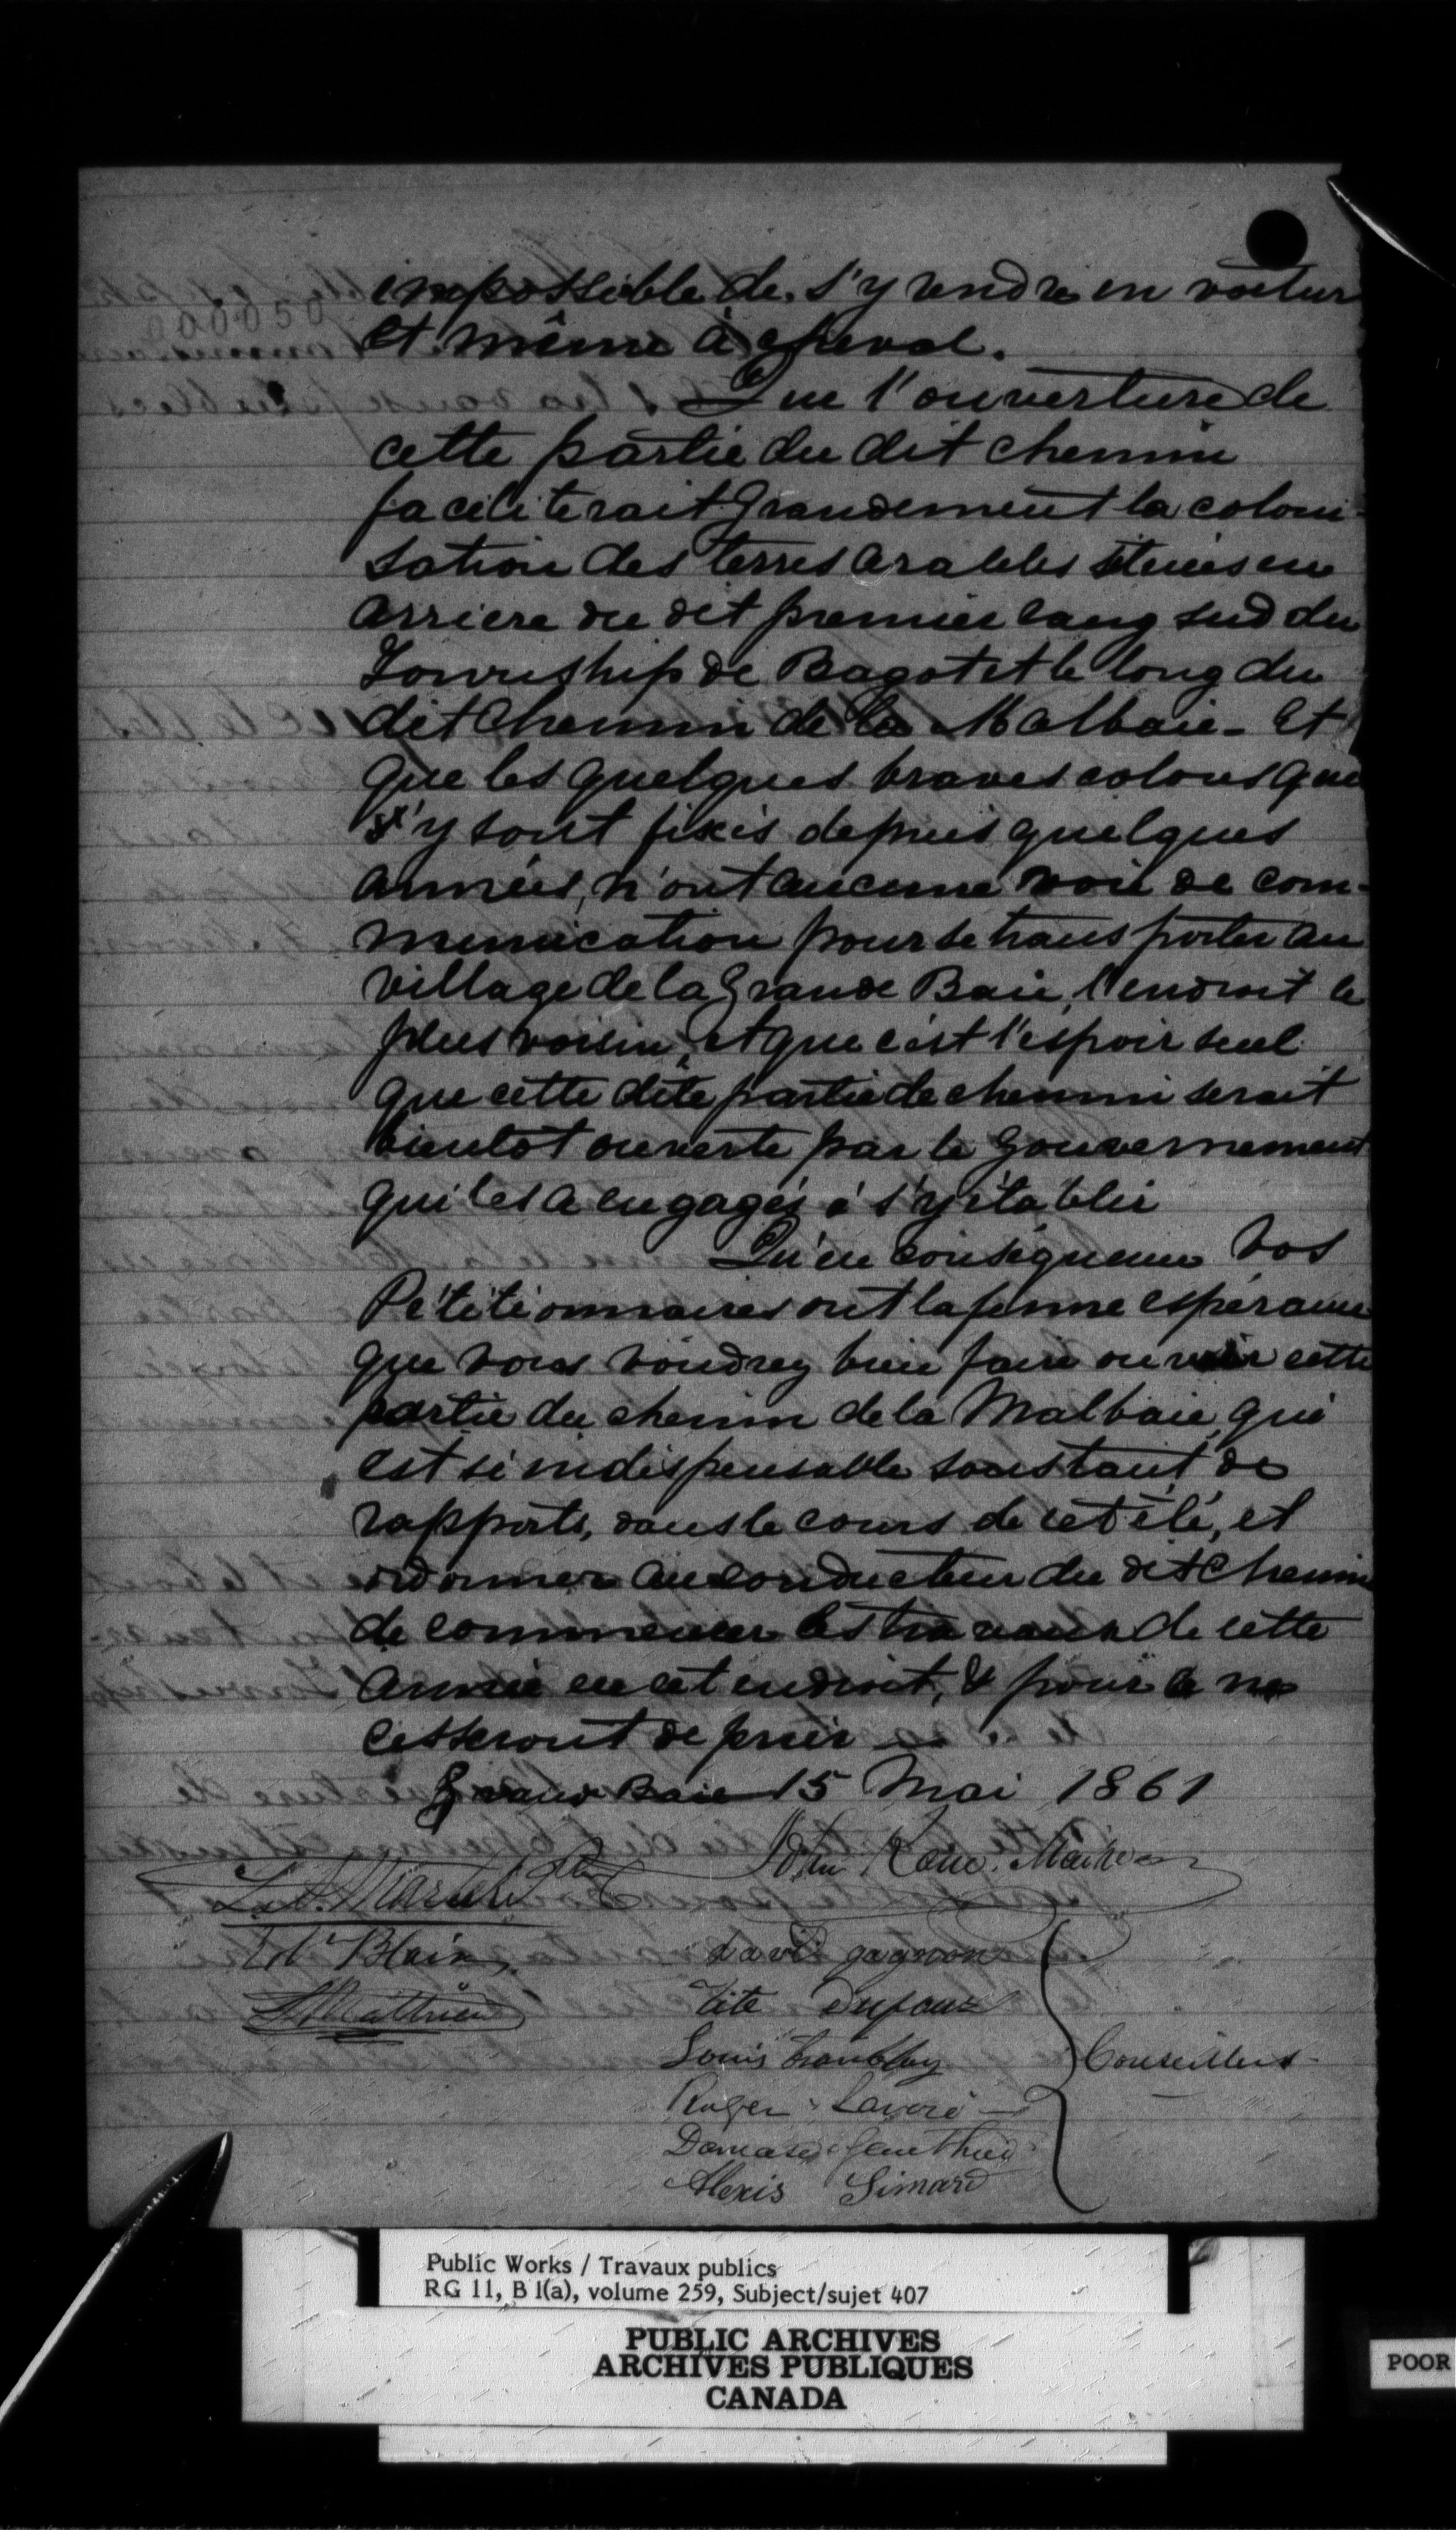 000050
impossible de s'y rendre en voiture
et même à cheval.
Que l'ouverture de
cette partie du dit chemin
faciliterait grandement la coloni-
sation des terres arables situées en
arriere du dit premier rang sud du
Township de Bagot et le long du
dit chemin de la Malbaie - Et
que les quelques braves colons qui
s'y sont fixés depuis quelques
années, n'ont aucune voie de com-
munication pour se transporter au
village de la Grande Baie, l'endroit le
plus voisin, et que c'est l'espoir seul
que cette dite partie de chemin serait
bientôt ouverte par le Gouvernement
qui les a engagés à s'y établir
Qu'en conséquence Vos
Pétitionnaires ont la ferme espérance
que vous voudrez bien faire ouvrir cette
partie du chemin de la Malbaie, qui
est si indispensable sous tant de
rapports, dans le cours de cet été, et
ordonner au conducteur du dit chemin
de commencer les travaux de cette
année en cet endroit, & pour le ne
cesseront de prier
Grande Baie 15 Mai 1861
John Kane Maire
L. A. Martel Ptre
Ed. Blair
David gagnon
Matthieu
Tite Dufour
Louis Tremblay
Conseillers
Roger Savoie
Damase Gauthier
Alexis Simard
Public Works / Travaux publics
RG 11, B 1(a), volume 259, Subject/sujet 407
PUBLIC ARCHIVES
ARCHIVES PUBLIQUES
CANADA
POOR